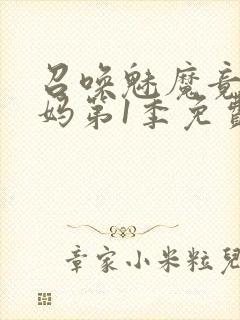 召唤魅魔竟
妈第1季免费
章家小米粒儿